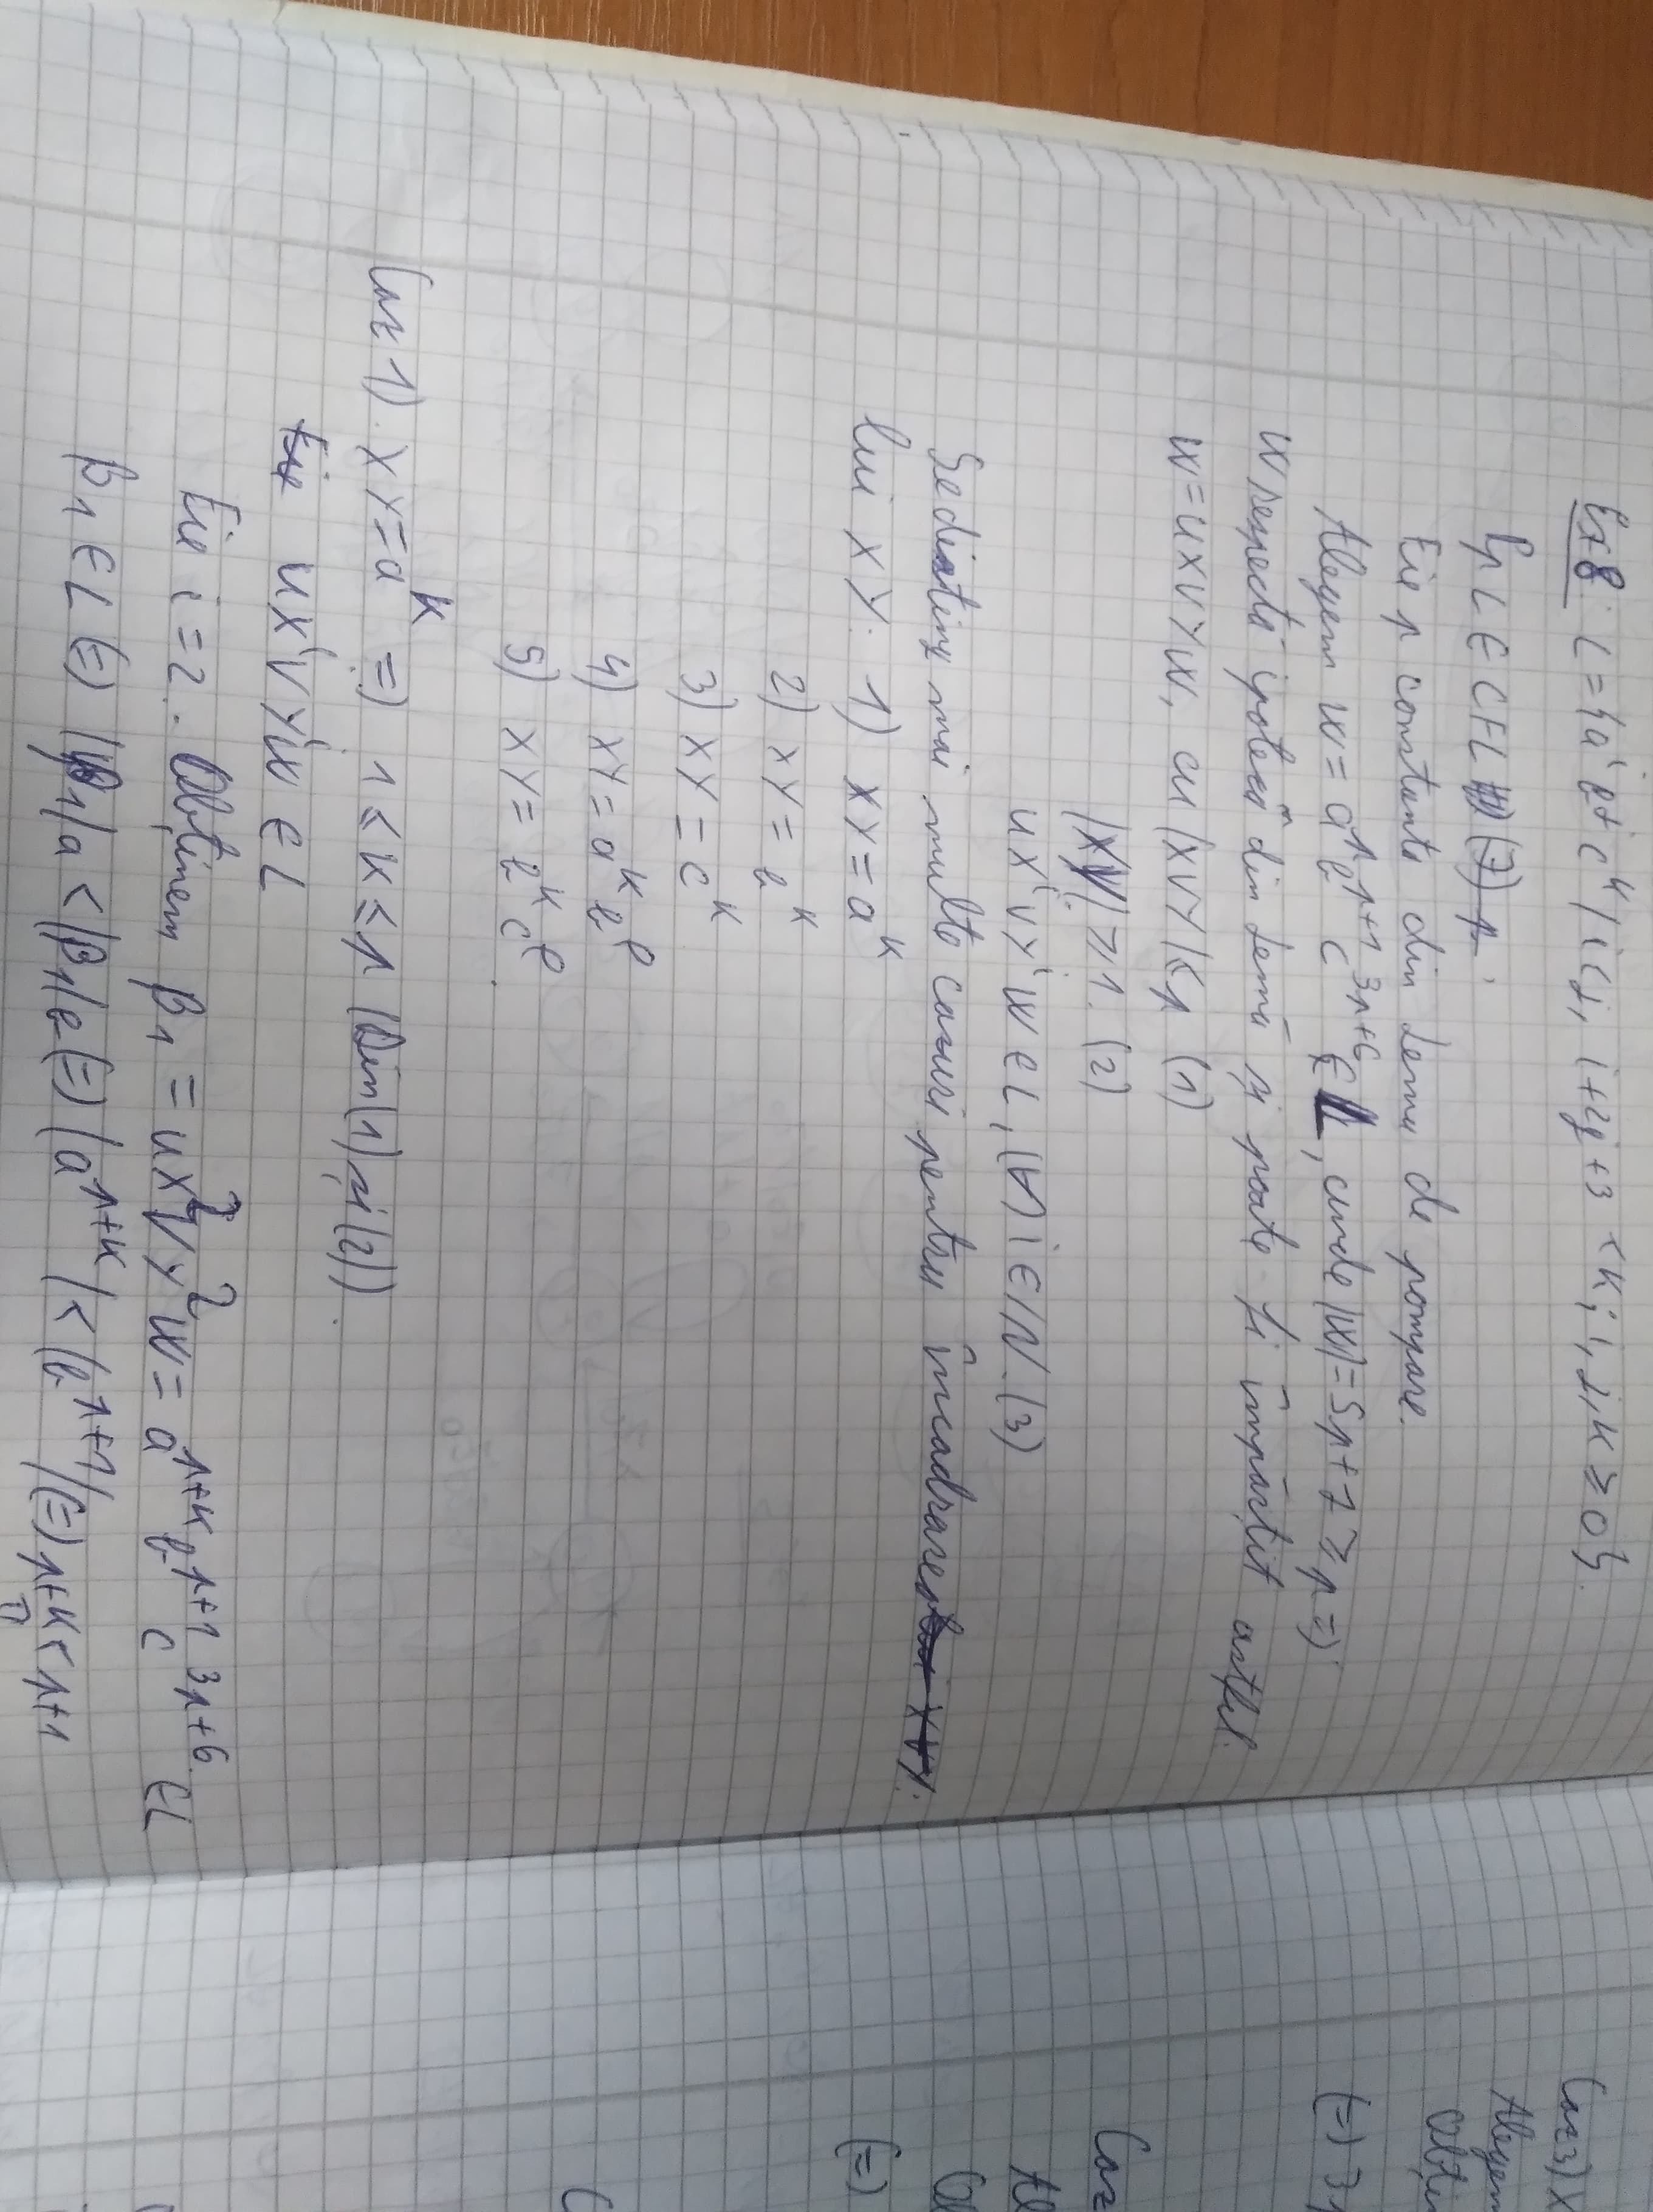 Ex8: L={a^i b^j c^k / i<j, i+2j+3 <k; i,j,k ≥ 0}.
Pp L ∈ CFL (∃) p
Fie p constanta din Lema de pompare.
Alegem w = a^p b^{p+1} c^{3p+6} ∈ L, unde |w|=5p+7 ≥ p =>
w respectă ipoteză din Lemă și poate fi împărțit astfel:
w=uxvyw, cu |xvy|≤p (1)
|xy| ≥ 1. (2)
ux^i vy^i w ∈ L, (∀) i ∈ ℕ. (3)
Se disting mai multe cazuri pentru încadrarea lui xvy:
lui xy: 1) xy = a^k
2) xy = b^k
3) xy = c^k
4) xy = a^k b^l
5) xy = b^k c^l.
Caz 1). xy=a^k => 1 ≤ k ≤ p (Din (1) și (2)).
Fie ux^i vy^i w ∈ L
Fie i=2. Obținem β1 = ux^2 vy^2 w = a^{p+k} b^{p+1} c^{3p+6} ∈ L
β1 ∈ L (=) |β1|a < |β1|b (=) |a^{p+k}| < |b^{p+1}| (=) p+k < p+1
Caz 3) x
Alegem
Obțin
(=) 3p
Caz
Al
Ob
(=)
C